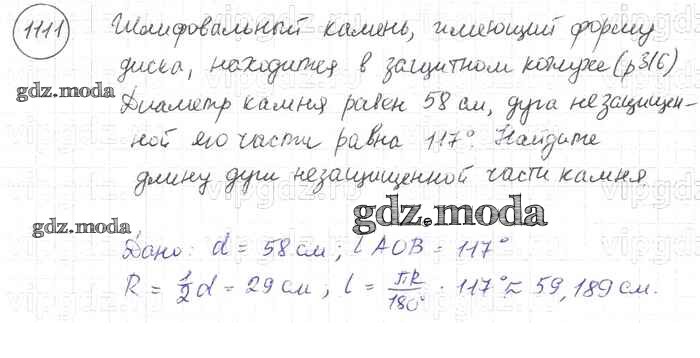 1111 Шлифовальный камень, имеющий форму
диска, находится в защитном кожухе (р 316)
gdz.moda
Диаметр камня равен 58 см, дуга незащищен-
ной его части равна 117°. Найдите
длину дуги незащищенной части камня
gdz.moda
gdz.moda
Дано: d = 58 см; ∠AOB = 117°
R = 1/2 d = 29 см; l = πR/180° · 117° ≈ 59,189 см.
gdz.moda